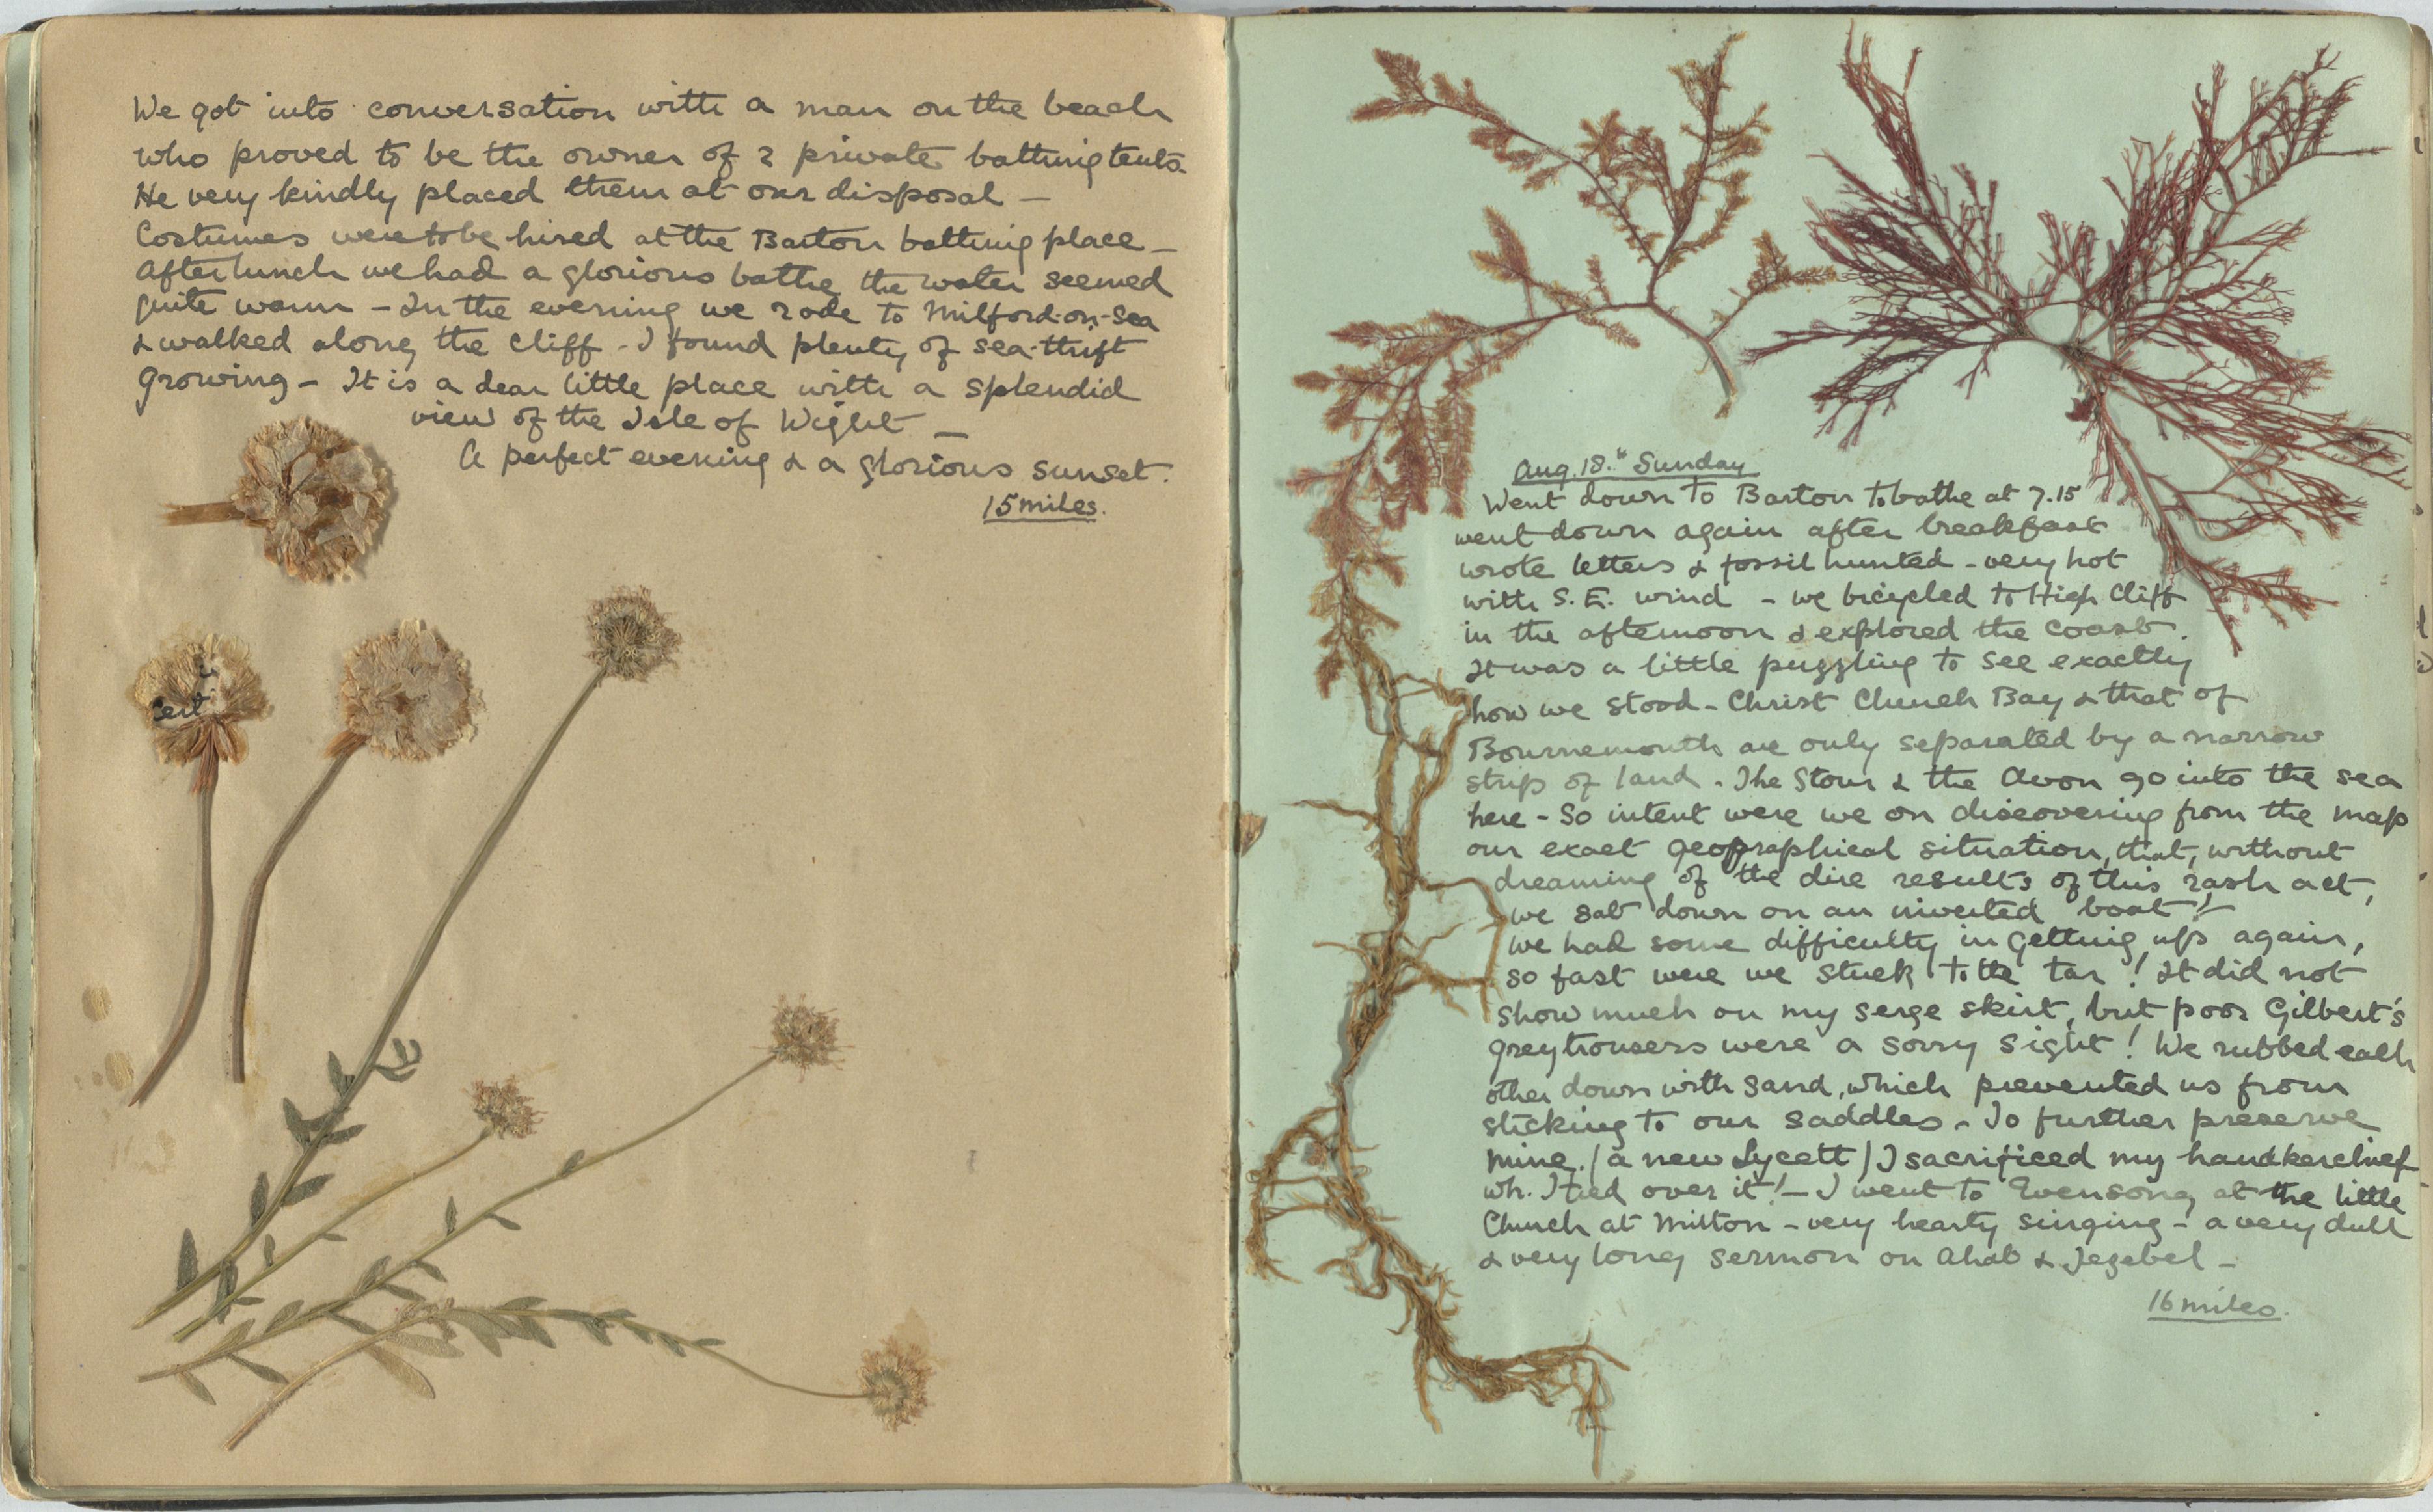 We got into conversation with a man on the beach
who proved to be the owner of 2 private bathing tents.
He very kindly placed them at our disposal –
Costumes were to be hired at the Barton bathing place –
After lunch we had a glorious bathe the water seemed
quite warm – In the evening we rode to Milford-on-Sea
& walked along the cliff – I found plenty of sea-thrift
growing – It is a dear little place with a splendid
view of the Isle of Wight –
A perfect evening & a glorious sunset.
15 miles.
Aug. 18.th Sunday
Went down to Barton to bathe at 7.15
went down again after breakfast
wrote letters & fossil hunted – very hot
with S.E. wind – we bicycled to High Cliff
in the afternoon & explored the coast.
It was a little puzzling to see exactly
how we stood – Christ Church Bay & that of
Bournemouth are only separated by a narrow
strip of land – The Stour & the Avon go into the sea
here – So intent were we on discovering from the map
our exact geographical situation, that, without
dreaming of the dire results of this rash act,
we sat down on an inverted boat! –
we had some difficulty in getting up again,
so fast were we stuck to the tar! It did not
show much on my serge skirt, but poor Gilbert's
grey trousers were a sorry sight! We rubbed each
other down with sand, which prevented us from
sticking to our saddles – To further preserve
mine (a new Lycett) I sacrificed my handkerchief
wh. I tied over it! – I went to Evensong at the little
Church at Milton – very hearty singing – a very dull
& very long sermon on Ahab & Jezebel –
16 miles.